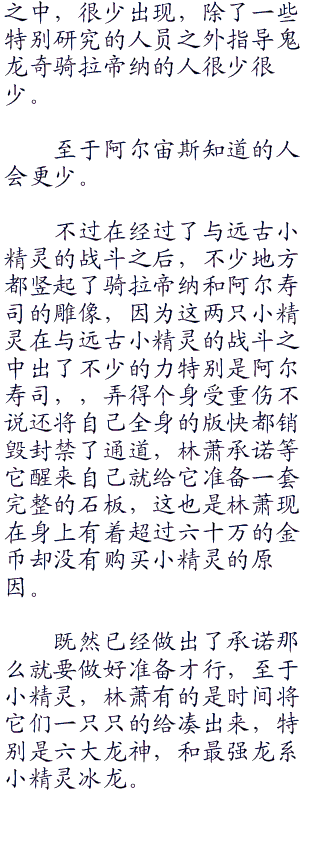 之中，很少出现，除了一些
特别研究的人员之外指导鬼
龙奇骑拉帝纳的人很少很
少。
　　至于阿尔宙斯知道的人
会更少。
　　不过在经过了与远古小
精灵的战斗之后，不少地方
都竖起了骑拉帝纳和阿尔寿
司的雕像，因为这两只小精
灵在与远古小精灵的战斗之
中出了不少的力特别是阿尔
寿司，，弄得个身受重伤不
说还将自己全身的版快都销
毁封禁了通道，林萧承诺等
它醒来自己就给它准备一套
完整的石板，这也是林萧现
在身上有着超过六十万的金
币却没有购买小精灵的原
因。
　　既然已经做出了承诺那
么就要做好准备才行，至于
小精灵，林萧有的是时间将
它们一只只的给凑出来，特
别是六大龙神，和最强龙系
小精灵冰龙。